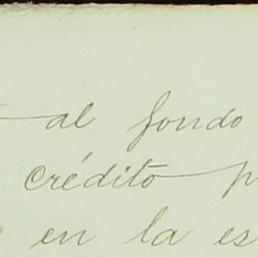 al fondo
crédito
en la es